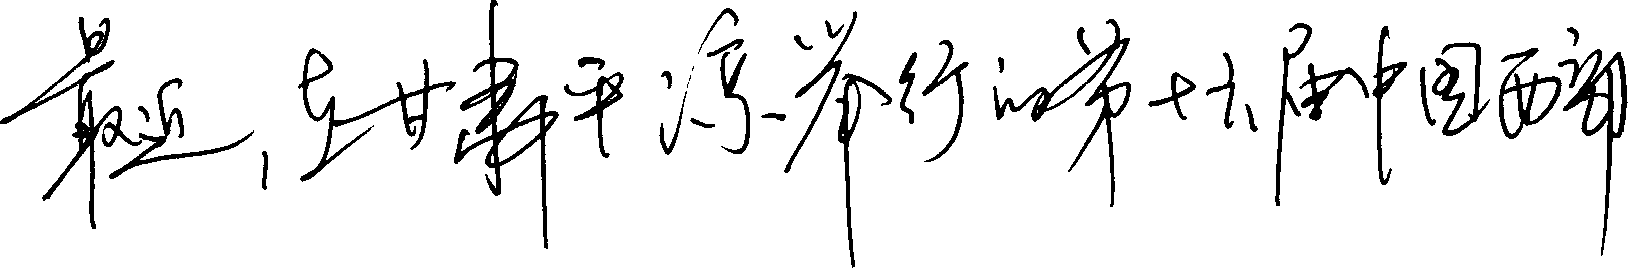 最近，在甘肃平凉举行的第十六届中国西部